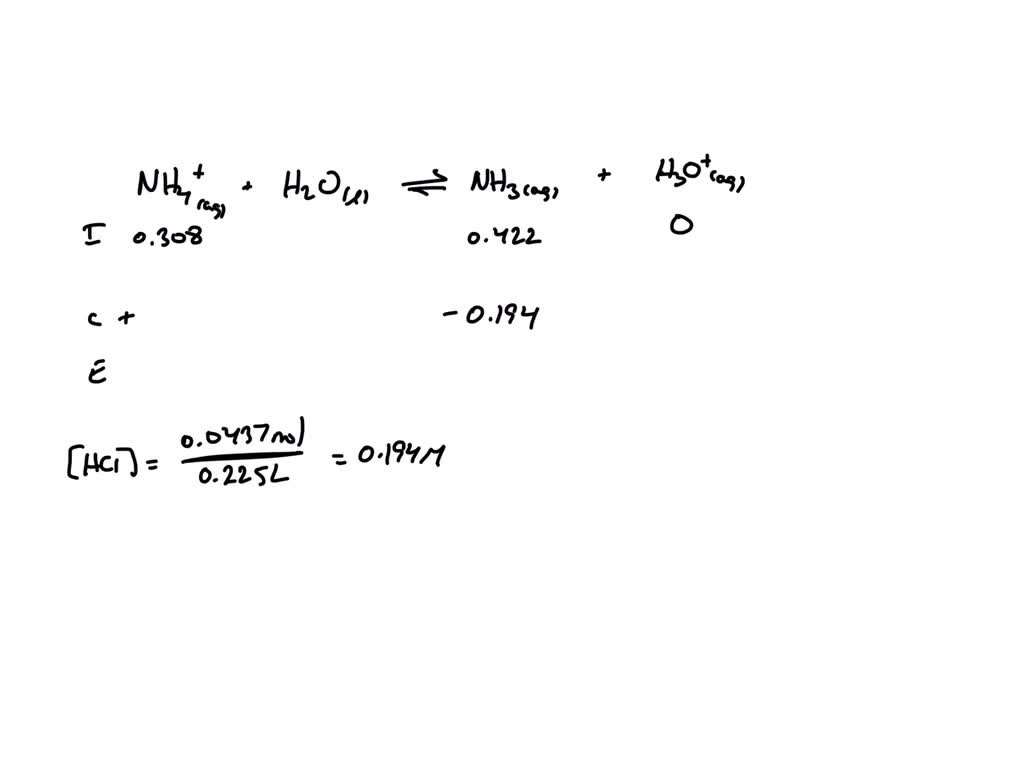 NH₄⁺(aq) + H₂O(l) ⇌ NH₃(aq) + H₃O⁺(aq)
I 0.308 0.422 0
C + -0.194
E
[HCl] = 0.0437mol / 0.225L = 0.194M